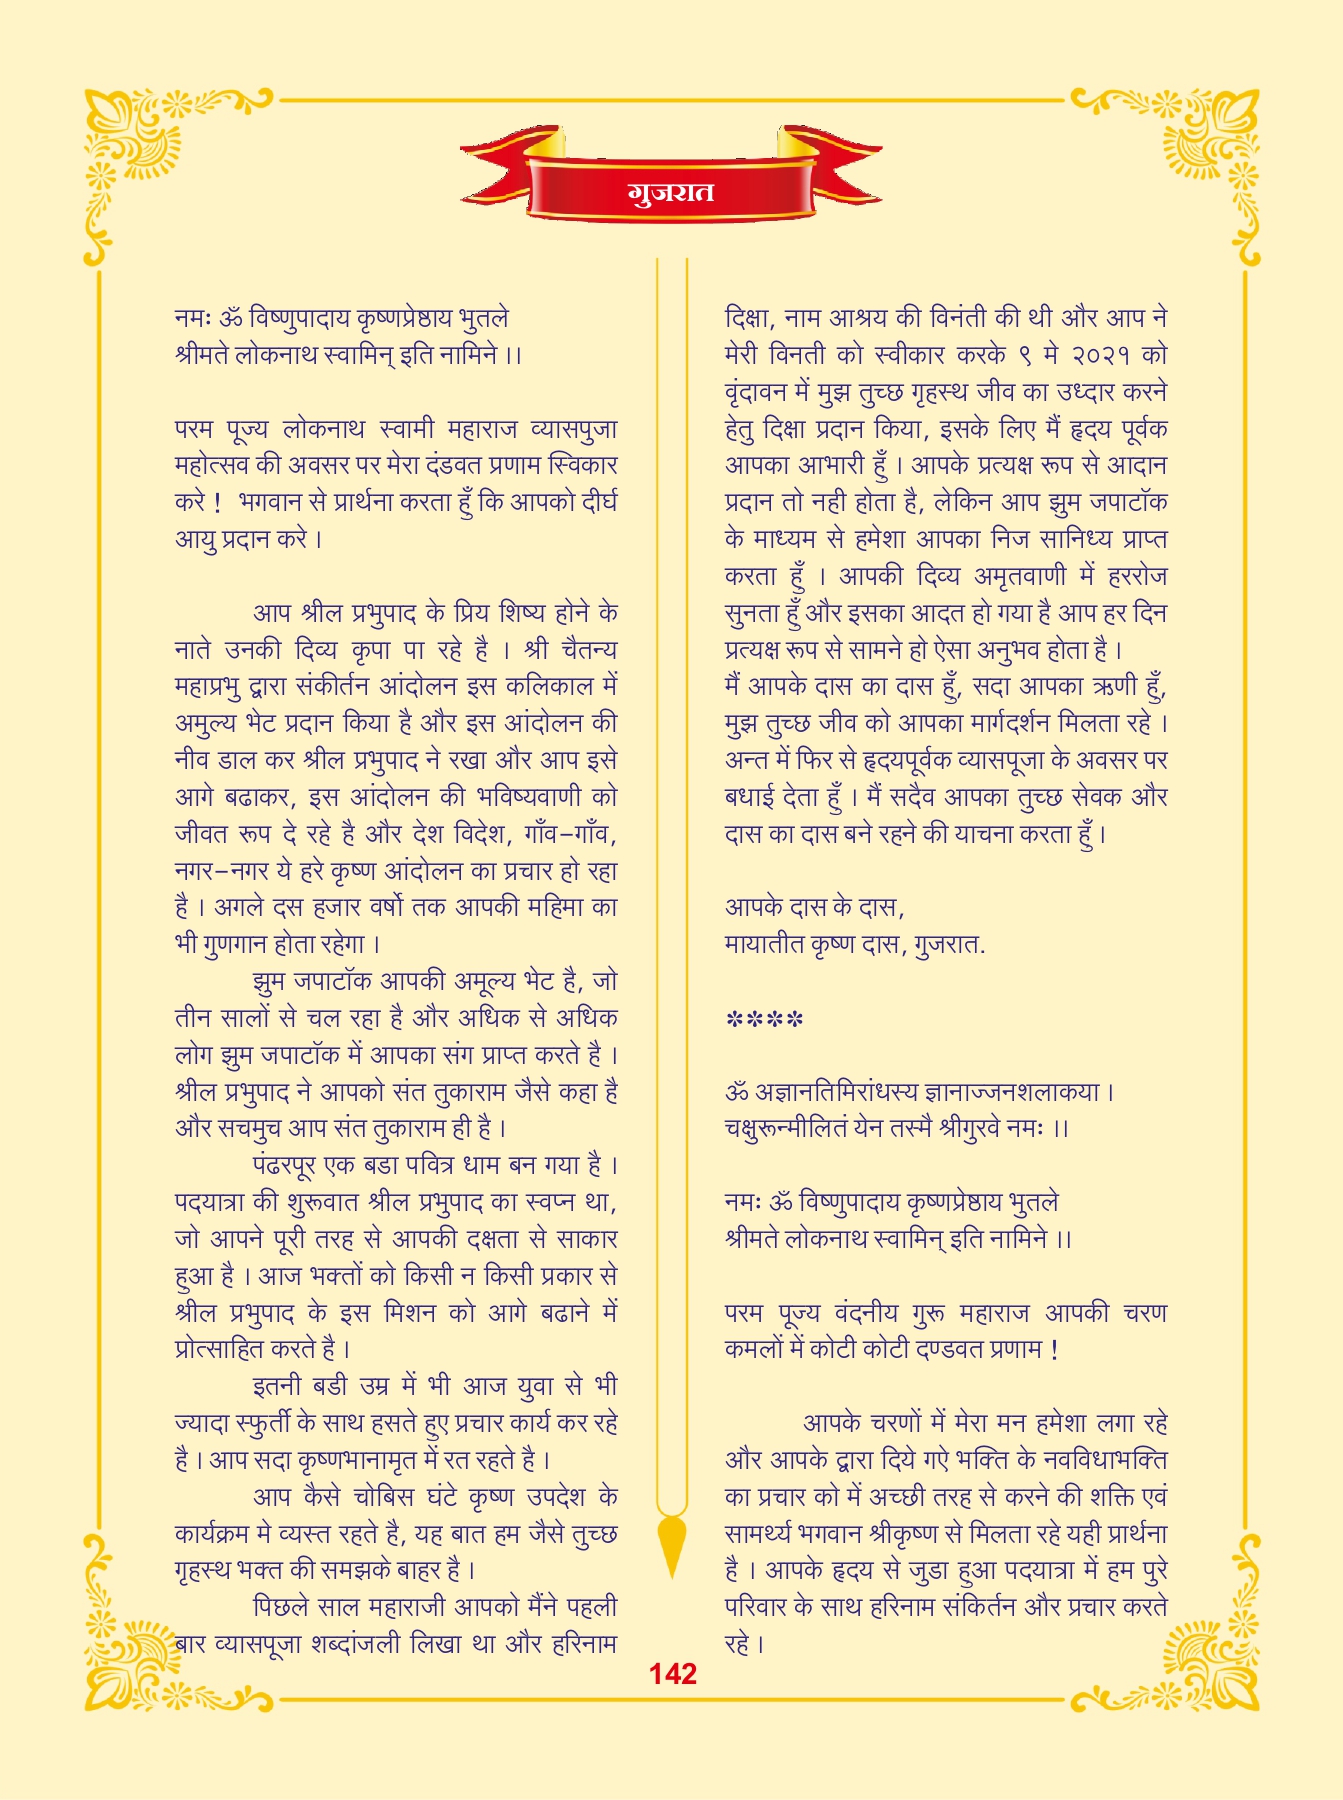 गुजरात
नमः ॐ विष्णुपादाय कृष्णप्रेष्ठाय भुतले
श्रीमते लोकनाथ स्वामिन् इति नामिने ।।
परम पूज्य लोकनाथ स्वामी महाराज व्यासपुजा
महोत्सव की अवसर पर मेरा दंडवत प्रणाम स्विकार
करे ! भगवान से प्रार्थना करता हुँ कि आपको दीर्घ
आयु प्रदान करे ।
आप श्रील प्रभुपाद के प्रिय शिष्य होने के
नाते उनकी दिव्य कृपा पा रहे है । श्री चैतन्य
महाप्रभु द्वारा संकीर्तन आंदोलन इस कलिकाल में
अमुल्य भेट प्रदान किया है और इस आंदोलन की
नीव डाल कर श्रील प्रभुपाद ने रखा और आप इसे
आगे बढाकर, इस आंदोलन की भविष्यवाणी को
जीवत रूप दे रहे है और देश विदेश, गाँव–गाँव,
नगर–नगर ये हरे कृष्ण आंदोलन का प्रचार हो रहा
है । अगले दस हजार वर्षो तक आपकी महिमा का
भी गुणगान होता रहेगा ।
झुम जपाटॉक आपकी अमूल्य भेट है, जो
तीन सालों से चल रहा है और अधिक से अधिक
लोग झुम जपाटॉक में आपका संग प्राप्त करते है ।
श्रील प्रभुपाद ने आपको संत तुकाराम जैसे कहा है
और सचमुच आप संत तुकाराम ही है ।
पंढरपूर एक बडा पवित्र धाम बन गया है ।
पदयात्रा की शुरूवात श्रील प्रभुपाद का स्वप्न था,
जो आपने पूरी तरह से आपकी दक्षता से साकार
हुआ है । आज भक्तों को किसी न किसी प्रकार से
श्रील प्रभुपाद के इस मिशन को आगे बढाने में
प्रोत्साहित करते है ।
इतनी बडी उम्र में भी आज युवा से भी
ज्यादा स्फुर्ती के साथ हसते हुए प्रचार कार्य कर रहे
है । आप सदा कृष्णभानामृत में रत रहते है ।
आप कैसे चोबिस घंटे कृष्ण उपदेश के
कार्यक्रम मे व्यस्त रहते है, यह बात हम जैसे तुच्छ
गृहस्थ भक्त की समझके बाहर है ।
पिछले साल महाराजी आपको मैंने पहली
बार व्यासपूजा शब्दांजली लिखा था और हरिनाम
दिक्षा, नाम आश्रय की विनंती की थी और आप ने
मेरी विनती को स्वीकार करके ९ मे २०२१ को
वृंदावन में मुझ तुच्छ गृहस्थ जीव का उध्दार करने
हेतु दिक्षा प्रदान किया, इसके लिए मैं हृदय पूर्वक
आपका आभारी हुँ । आपके प्रत्यक्ष रूप से आदान
प्रदान तो नही होता है, लेकिन आप झुम जपाटॉक
के माध्यम से हमेशा आपका निज सानिध्य प्राप्त
करता हुँ । आपकी दिव्य अमृतवाणी में हररोज
सुनता हुँ और इसका आदत हो गया है आप हर दिन
प्रत्यक्ष रूप से सामने हो ऐसा अनुभव होता है ।
मैं आपके दास का दास हुँ, सदा आपका ऋणी हुँ,
मुझ तुच्छ जीव को आपका मार्गदर्शन मिलता रहे ।
अन्त में फिर से हृदयपूर्वक व्यासपूजा के अवसर पर
बधाई देता हुँ । मैं सदैव आपका तुच्छ सेवक और
दास का दास बने रहने की याचना करता हुँ ।
आपके दास के दास,
मायातीत कृष्ण दास, गुजरात.
****
ॐ अज्ञानतिमिरांधस्य ज्ञानाज्जनशलाकया ।
चक्षुरून्मीलितं येन तस्मै श्रीगुरवे नमः ।।
नमः ॐ विष्णुपादाय कृष्णप्रेष्ठाय भुतले
श्रीमते लोकनाथ स्वामिन् इति नामिने ।।
परम पूज्य वंदनीय गुरू महाराज आपकी चरण
कमलों में कोटी कोटी दण्डवत प्रणाम !
आपके चरणों में मेरा मन हमेशा लगा रहे
और आपके द्वारा दिये गऐ भक्ति के नवविधाभक्ति
का प्रचार को में अच्छी तरह से करने की शक्ति एवं
सामर्थ्य भगवान श्रीकृष्ण से मिलता रहे यही प्रार्थना
है । आपके हृदय से जुडा हुआ पदयात्रा में हम पुरे
परिवार के साथ हरिनाम संकिर्तन और प्रचार करते
रहे ।
142